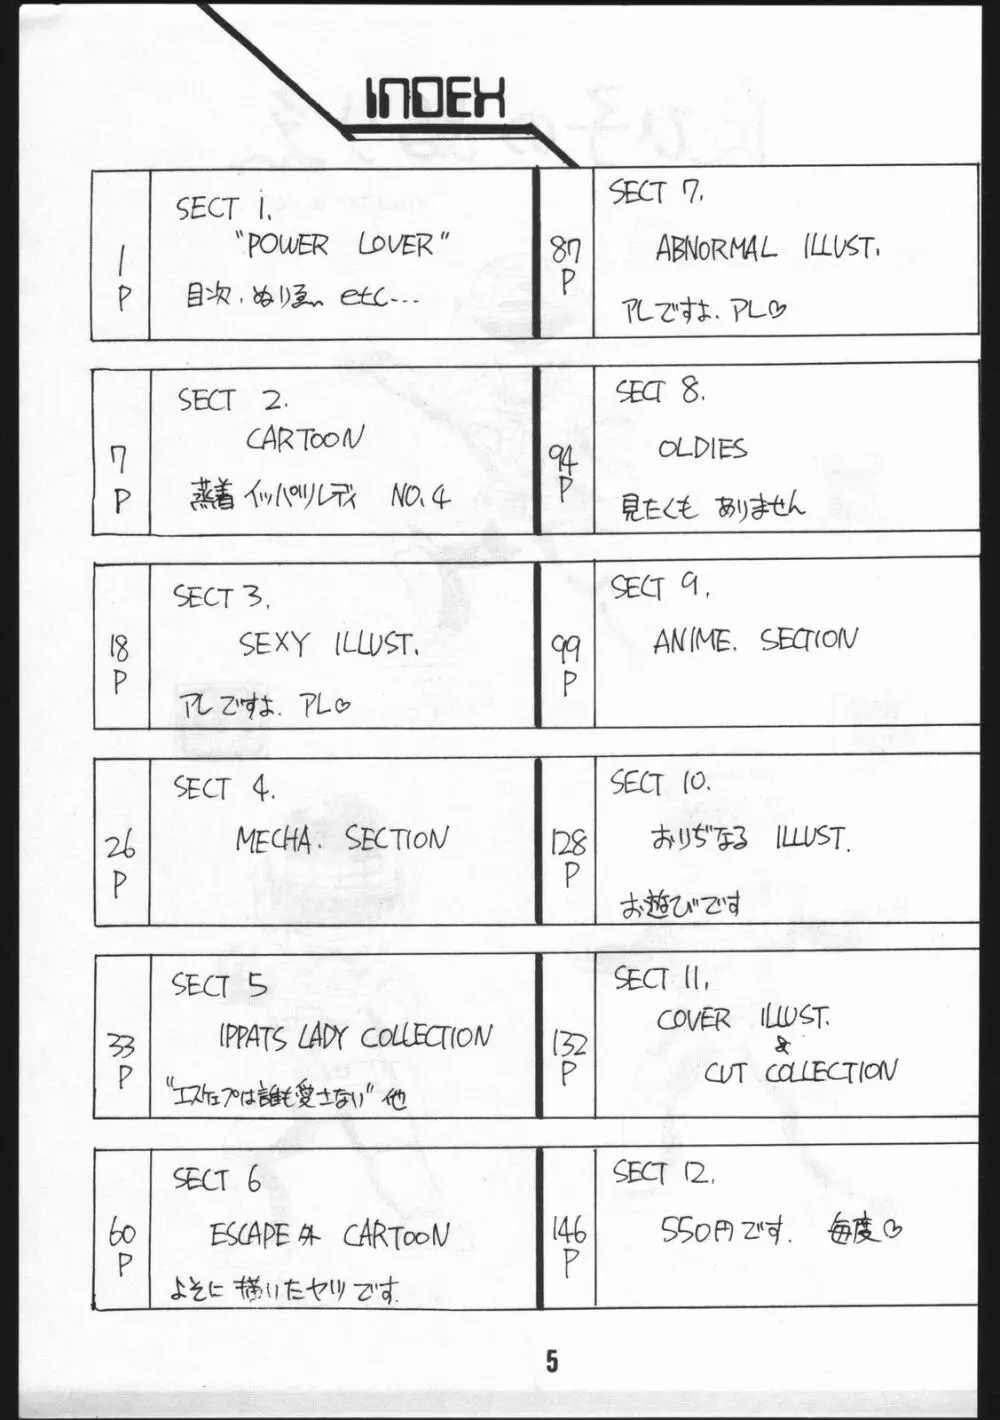 INDEX
1P
SECT 1.
"POWER LOVER"
目次、ぬりえ、etc...
7P
SECT 2.
CARTOON
蒸着イッパツレディ NO.4
18P
SECT 3.
SEXY ILLUST.
アレですよ.アレ♡
26P
SECT 4.
MECHA. SECTION
33P
SECT 5
IPPATS LADY COLLECTION
"エスケェプは誰も愛さない"他
60P
SECT 6
ESCAPE外 CARTOON
よそに描いたヤツです.
87P
SECT 7.
ABNORMAL ILLUST.
アレですよ.アレ♡
94P
SECT 8.
OLDIES
見たくもありません
99P
SECT 9.
ANIME. SECTION
128P
SECT 10.
おりぢなる ILLUST.
お遊びです
132P
SECT 11.
COVER ILLUST.
&
CUT COLLECTION
146P
SECT 12.
550円です. 毎度♡
5